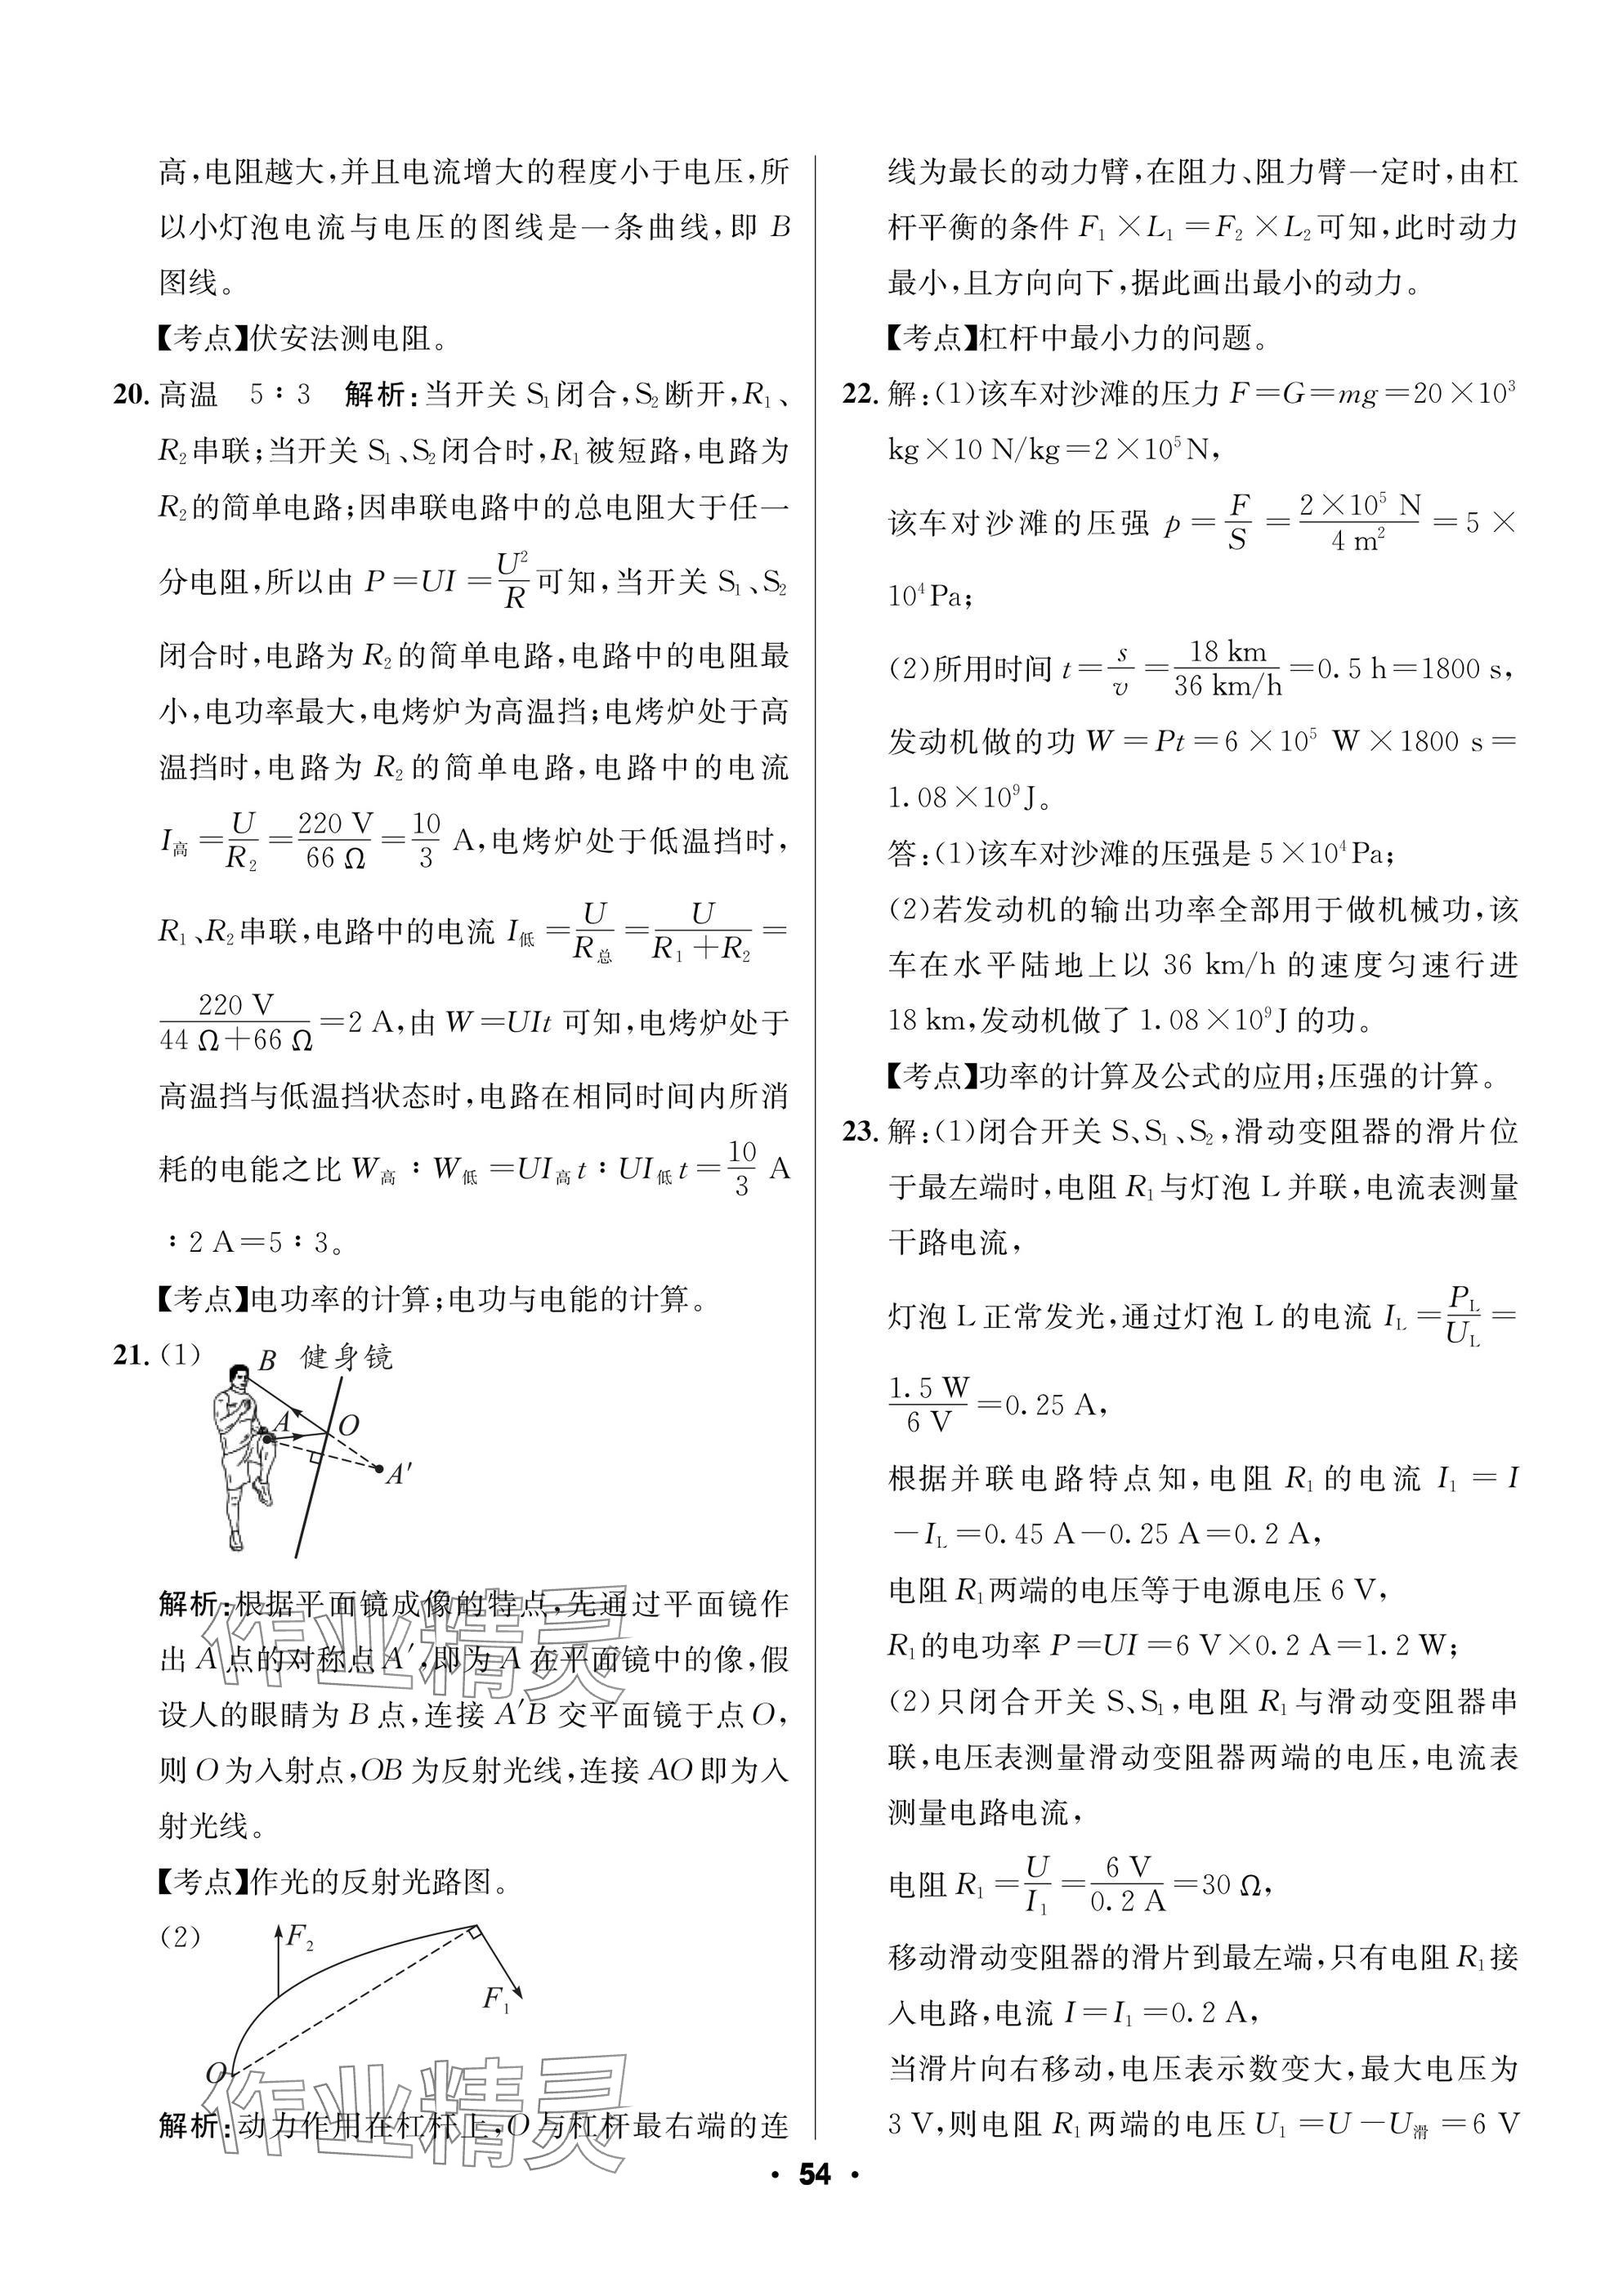 高,电阻越大,并且电流增大的程度小于电压,所
以小灯泡电流与电压的图线是一条曲线,即 B
图线。
【考点】伏安法测电阻。
20. 高温　5∶3　解析:当开关 S₁闭合,S₂断开,R₁、
R₂串联;当开关 S₁、S₂闭合时,R₁被短路,电路为
R₂的简单电路;因串联电路中的总电阻大于任一
分电阻,所以由 P=UI=U²/R可知,当开关 S₁、S₂
闭合时,电路为 R₂的简单电路,电路中的电阻最
小,电功率最大,电烤炉为高温挡;电烤炉处于高
温挡时,电路为 R₂的简单电路,电路中的电流
I高=U/R₂=220 V/66 Ω=10/3 A,电烤炉处于低温挡时,
R₁、R₂串联,电路中的电流 I低=U/R总=U/(R₁+R₂)=
220 V/(44 Ω+66 Ω)=2 A,由 W=UIt 可知,电烤炉处于
高温挡与低温挡状态时,电路在相同时间内所消
耗的电能之比 W高∶W低=UI高t∶UI低t=10/3 A
∶2 A=5∶3。
【考点】电功率的计算;电功与电能的计算。
21. (1)
B 健身镜
A O
A′
解析:根据平面镜成像的特点,先通过平面镜作
出 A 点的对称点 A′,即为 A 在平面镜中的像,假
设人的眼睛为 B 点,连接 A′B 交平面镜于点 O,
则 O 为入射点,OB 为反射光线,连接 AO 即为入
射光线。
【考点】作光的反射光路图。
(2)
F₂
F₁
O
解析:动力作用在杠杆上,O 与杠杆最右端的连
线为最长的动力臂,在阻力、阻力臂一定时,由杠
杆平衡的条件 F₁×L₁=F₂×L₂可知,此时动力
最小,且方向向下,据此画出最小的动力。
【考点】杠杆中最小力的问题。
22. 解:(1)该车对沙滩的压力 F=G=mg=20×10³
kg×10 N/kg=2×10⁵N,
该车对沙滩的压强 p=F/S=2×10⁵ N/4 m²=5×
10⁴Pa;
(2)所用时间 t=s/v=18 km/36 km/h=0.5 h=1800 s,
发动机做的功 W=Pt=6×10⁵ W×1800 s=
1.08×10⁹J。
答:(1)该车对沙滩的压强是 5×10⁴Pa;
(2)若发动机的输出功率全部用于做机械功,该
车在水平陆地上以 36 km/h 的速度匀速行进
18 km,发动机做了 1.08×10⁹J 的功。
【考点】功率的计算及公式的应用;压强的计算。
23. 解:(1)闭合开关 S、S₁、S₂,滑动变阻器的滑片位
于最左端时,电阻 R₁与灯泡 L 并联,电流表测量
干路电流,
灯泡 L 正常发光,通过灯泡 L 的电流 I_L=P_L/U_L=
1.5 W/6 V=0.25 A,
根据并联电路特点知,电阻 R₁的电流 I₁=I
-I_L=0.45 A-0.25 A=0.2 A,
电阻 R₁两端的电压等于电源电压 6 V,
R₁的电功率 P=UI=6 V×0.2 A=1.2 W;
(2)只闭合开关 S、S₁,电阻 R₁与滑动变阻器串
联,电压表测量滑动变阻器两端的电压,电流表
测量电路电流,
电阻 R₁=U/I₁=6 V/0.2 A=30 Ω,
移动滑动变阻器的滑片到最左端,只有电阻 R₁接
入电路,电流 I=I₁=0.2 A,
当滑片向右移动,电压表示数变大,最大电压为
3 V,则电阻 R₁两端的电压 U₁=U-U滑=6 V
作业精灵
作业精灵
· 54 ·